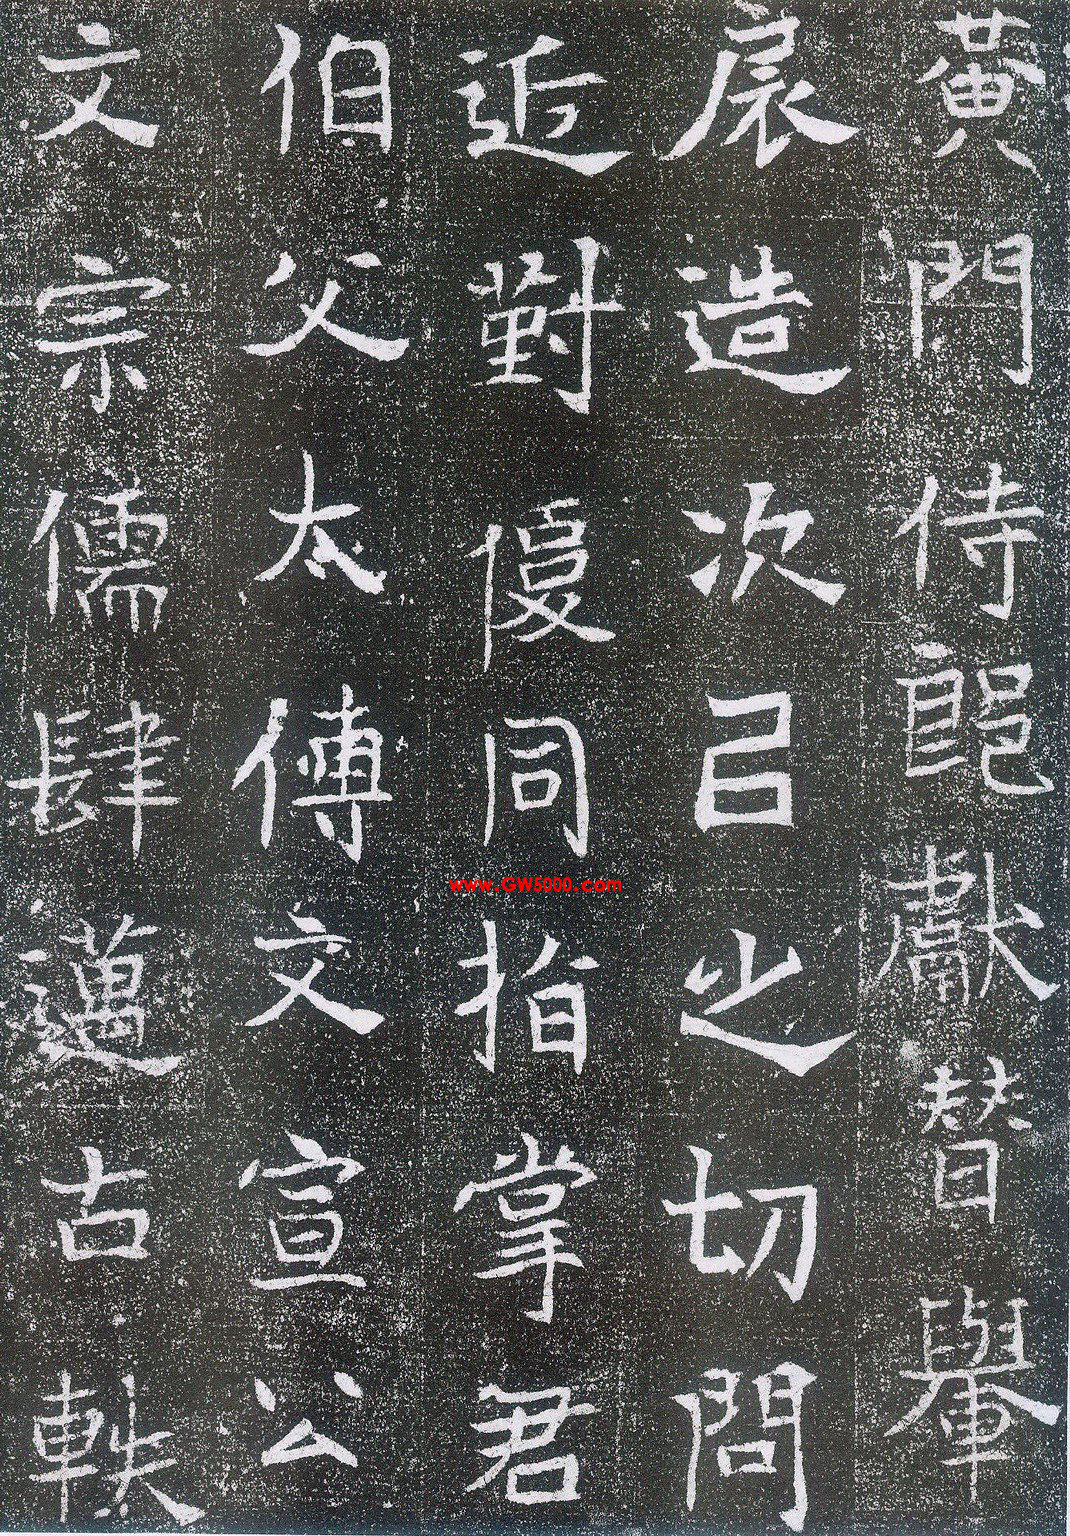 黃門侍郎獻替轝
扆造次㠯之切問
近對優同指掌君
伯父太傅文宣公
文宗儒肆邁古軼
www.GW5000.com